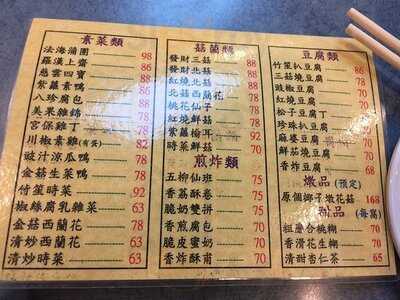 素菜類
法海蒲團 98
羅漢上齋 86
慈雲四寶 88
紫蘿素鴨 86
八珍腐包 88
美果雜錦 78
宮保雞丁 78
川椒素雞(有蛋) 82
豉汁涼瓜鴨 78
金菇生菜鴨 78
竹笙時菜 92
椒絲腐乳雜菜 63
金菇西蘭花 78
清炒西蘭花 63
清炒時菜 63
菇菌類
發財三菇 88
發財北菇
紅燒北菇
北菇西蘭花
桃花仙子
紅燒鮮
紫蘿榆耳 92
時菜鮮菇 70
煎炸類
五柳仙班 75
香荔酥卷 75
脆奶雙拼 75
香煎腐包 70
脆皮蜜奶 70
香炸酥甫 70
豆腐類
竹笙扒豆腐
三菇燒豆腐
豉椒豆腐
紅燒豆腐
松子豆腐
珍珠扒豆腐
麻婆豆腐 68
鮮茄豆腐 68
香炸豆腐 68
燉品 (預定)
原個椰子燉花菇 168
甜品 (每窩)
桃糊 70
香滑花生糊 70
清甜杏仁茶 65